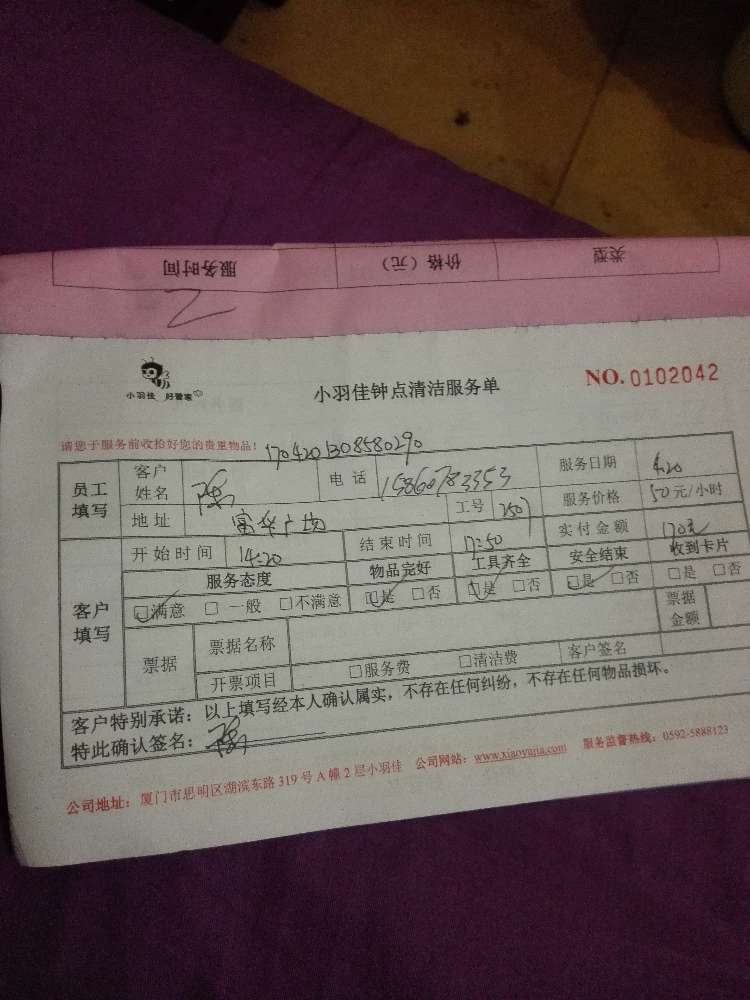 服务时间 价格（元） 类型
小羽佳 好管家
小羽佳钟点清洁服务单
NO. 0102042
请您于服务前收拾好您的贵重物品！ 1704201308580290
员工填写 客户姓名 电话 15860783353 服务日期 4.20
地址 富华广场 工号 250 服务价格 50元/小时
客户填写 开始时间 14:20 结束时间 17:50 实付金额 170元
服务态度 物品完好 工具齐全 安全结束 收到卡片
☑满意 □一般 □不满意 ☑是 □否 ☑是 □否 ☑是 □否 □是 □否
票据 票据名称 票据金额
开票项目 □服务费 □清洁费 客户签名
客户特别承诺：以上填写经本人确认属实，不存在任何纠纷，不存在任何物品损坏。
特此确认签名：
公司地址：厦门市思明区湖滨东路319号A幢2层小羽佳 公司网站：www.xiaoyujia.com 服务监督热线：0592-5888123